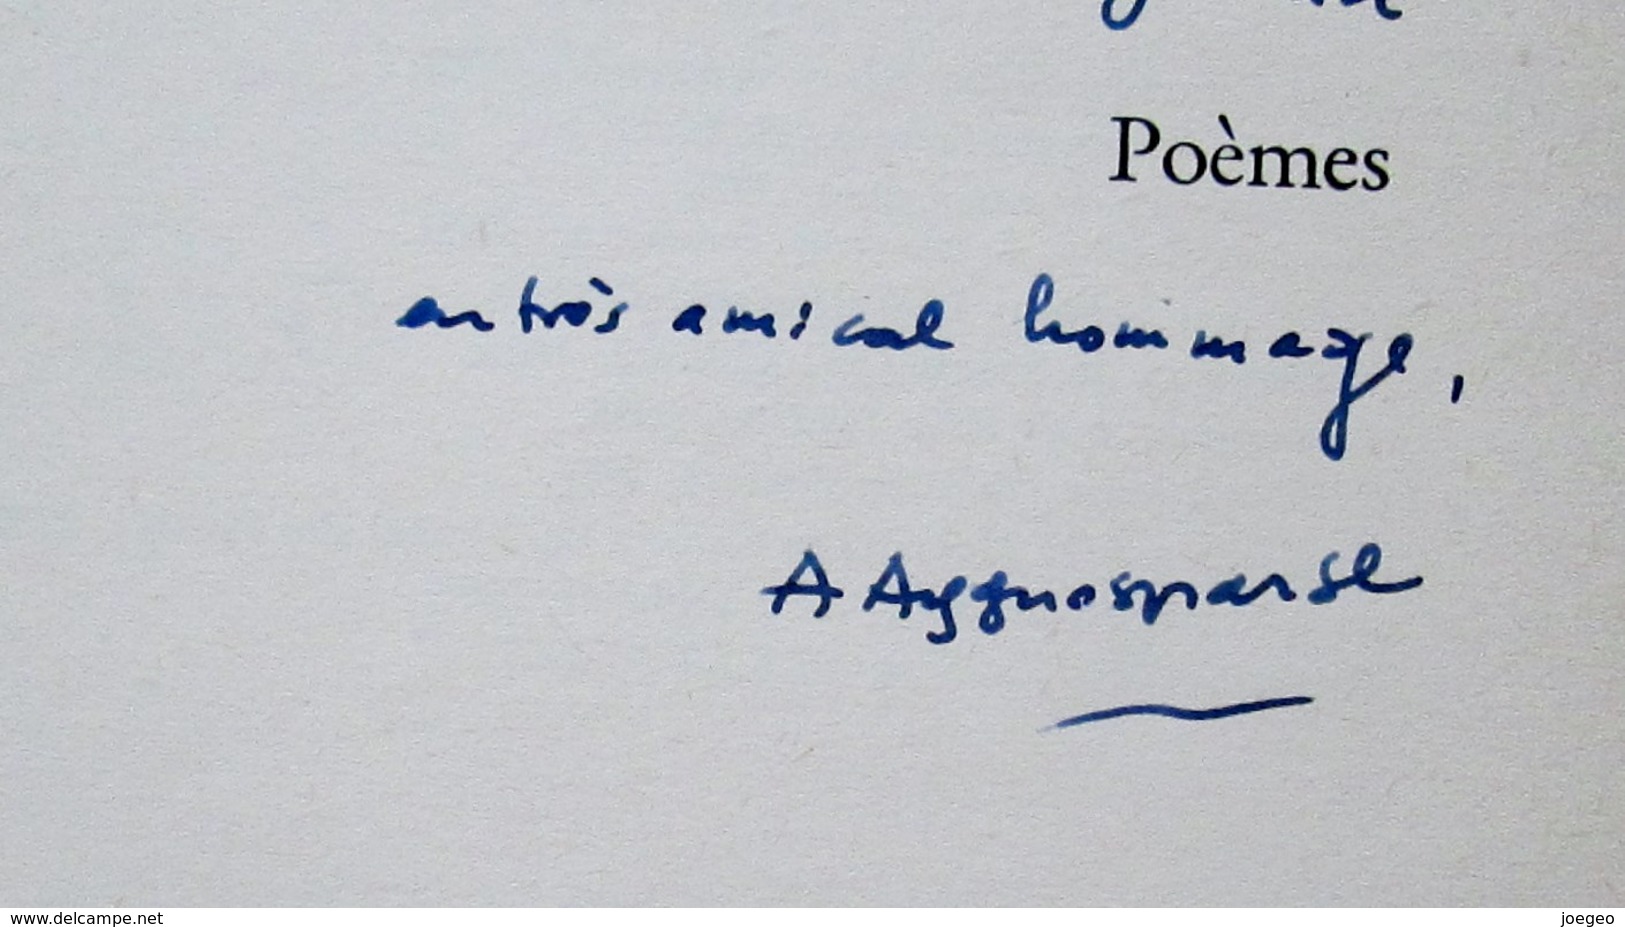 Poèmes
en très amical hommage,
A Ayguesparse
www.delcampe.net
joegeo